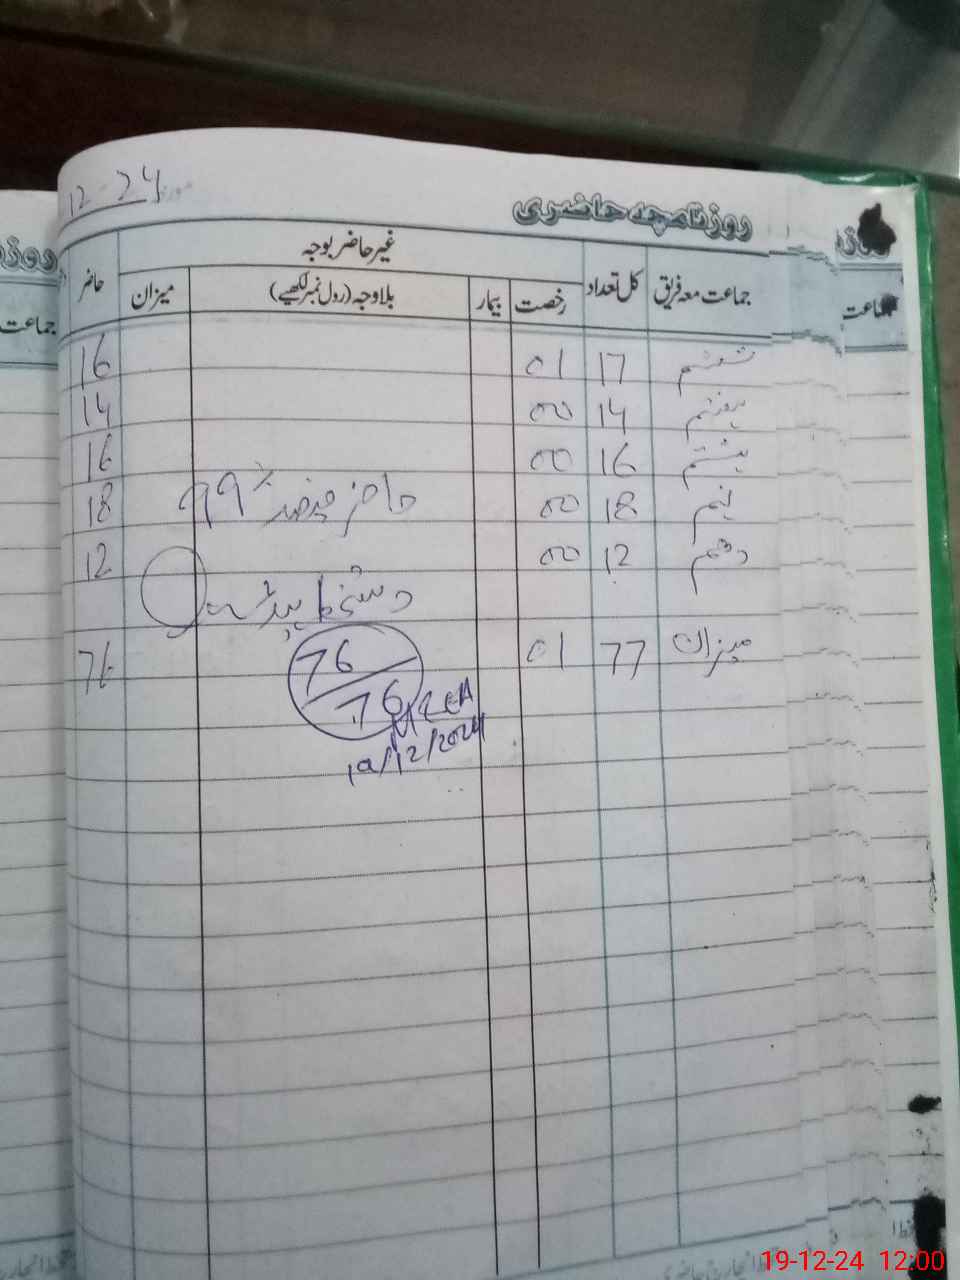 12-24
روزنامچہ حاضری
جماعت معہ فریق کل تعداد غیر حاضر بوجہ حاضر
رخصت بیمار بلاوجہ (رول نمبر لکھیے) میزان
ششم 17 01 16
ہفتم 14 00 14
ہشتم 16 00 16
نہم 18 00 حاضر فیصد 99% 18
دہم 12 00 12
دستخط ہیڈ
میزان 77 01 76
76
76
19/12/2024
روزنا
جماعت
جماعت
19-12-24 12:00